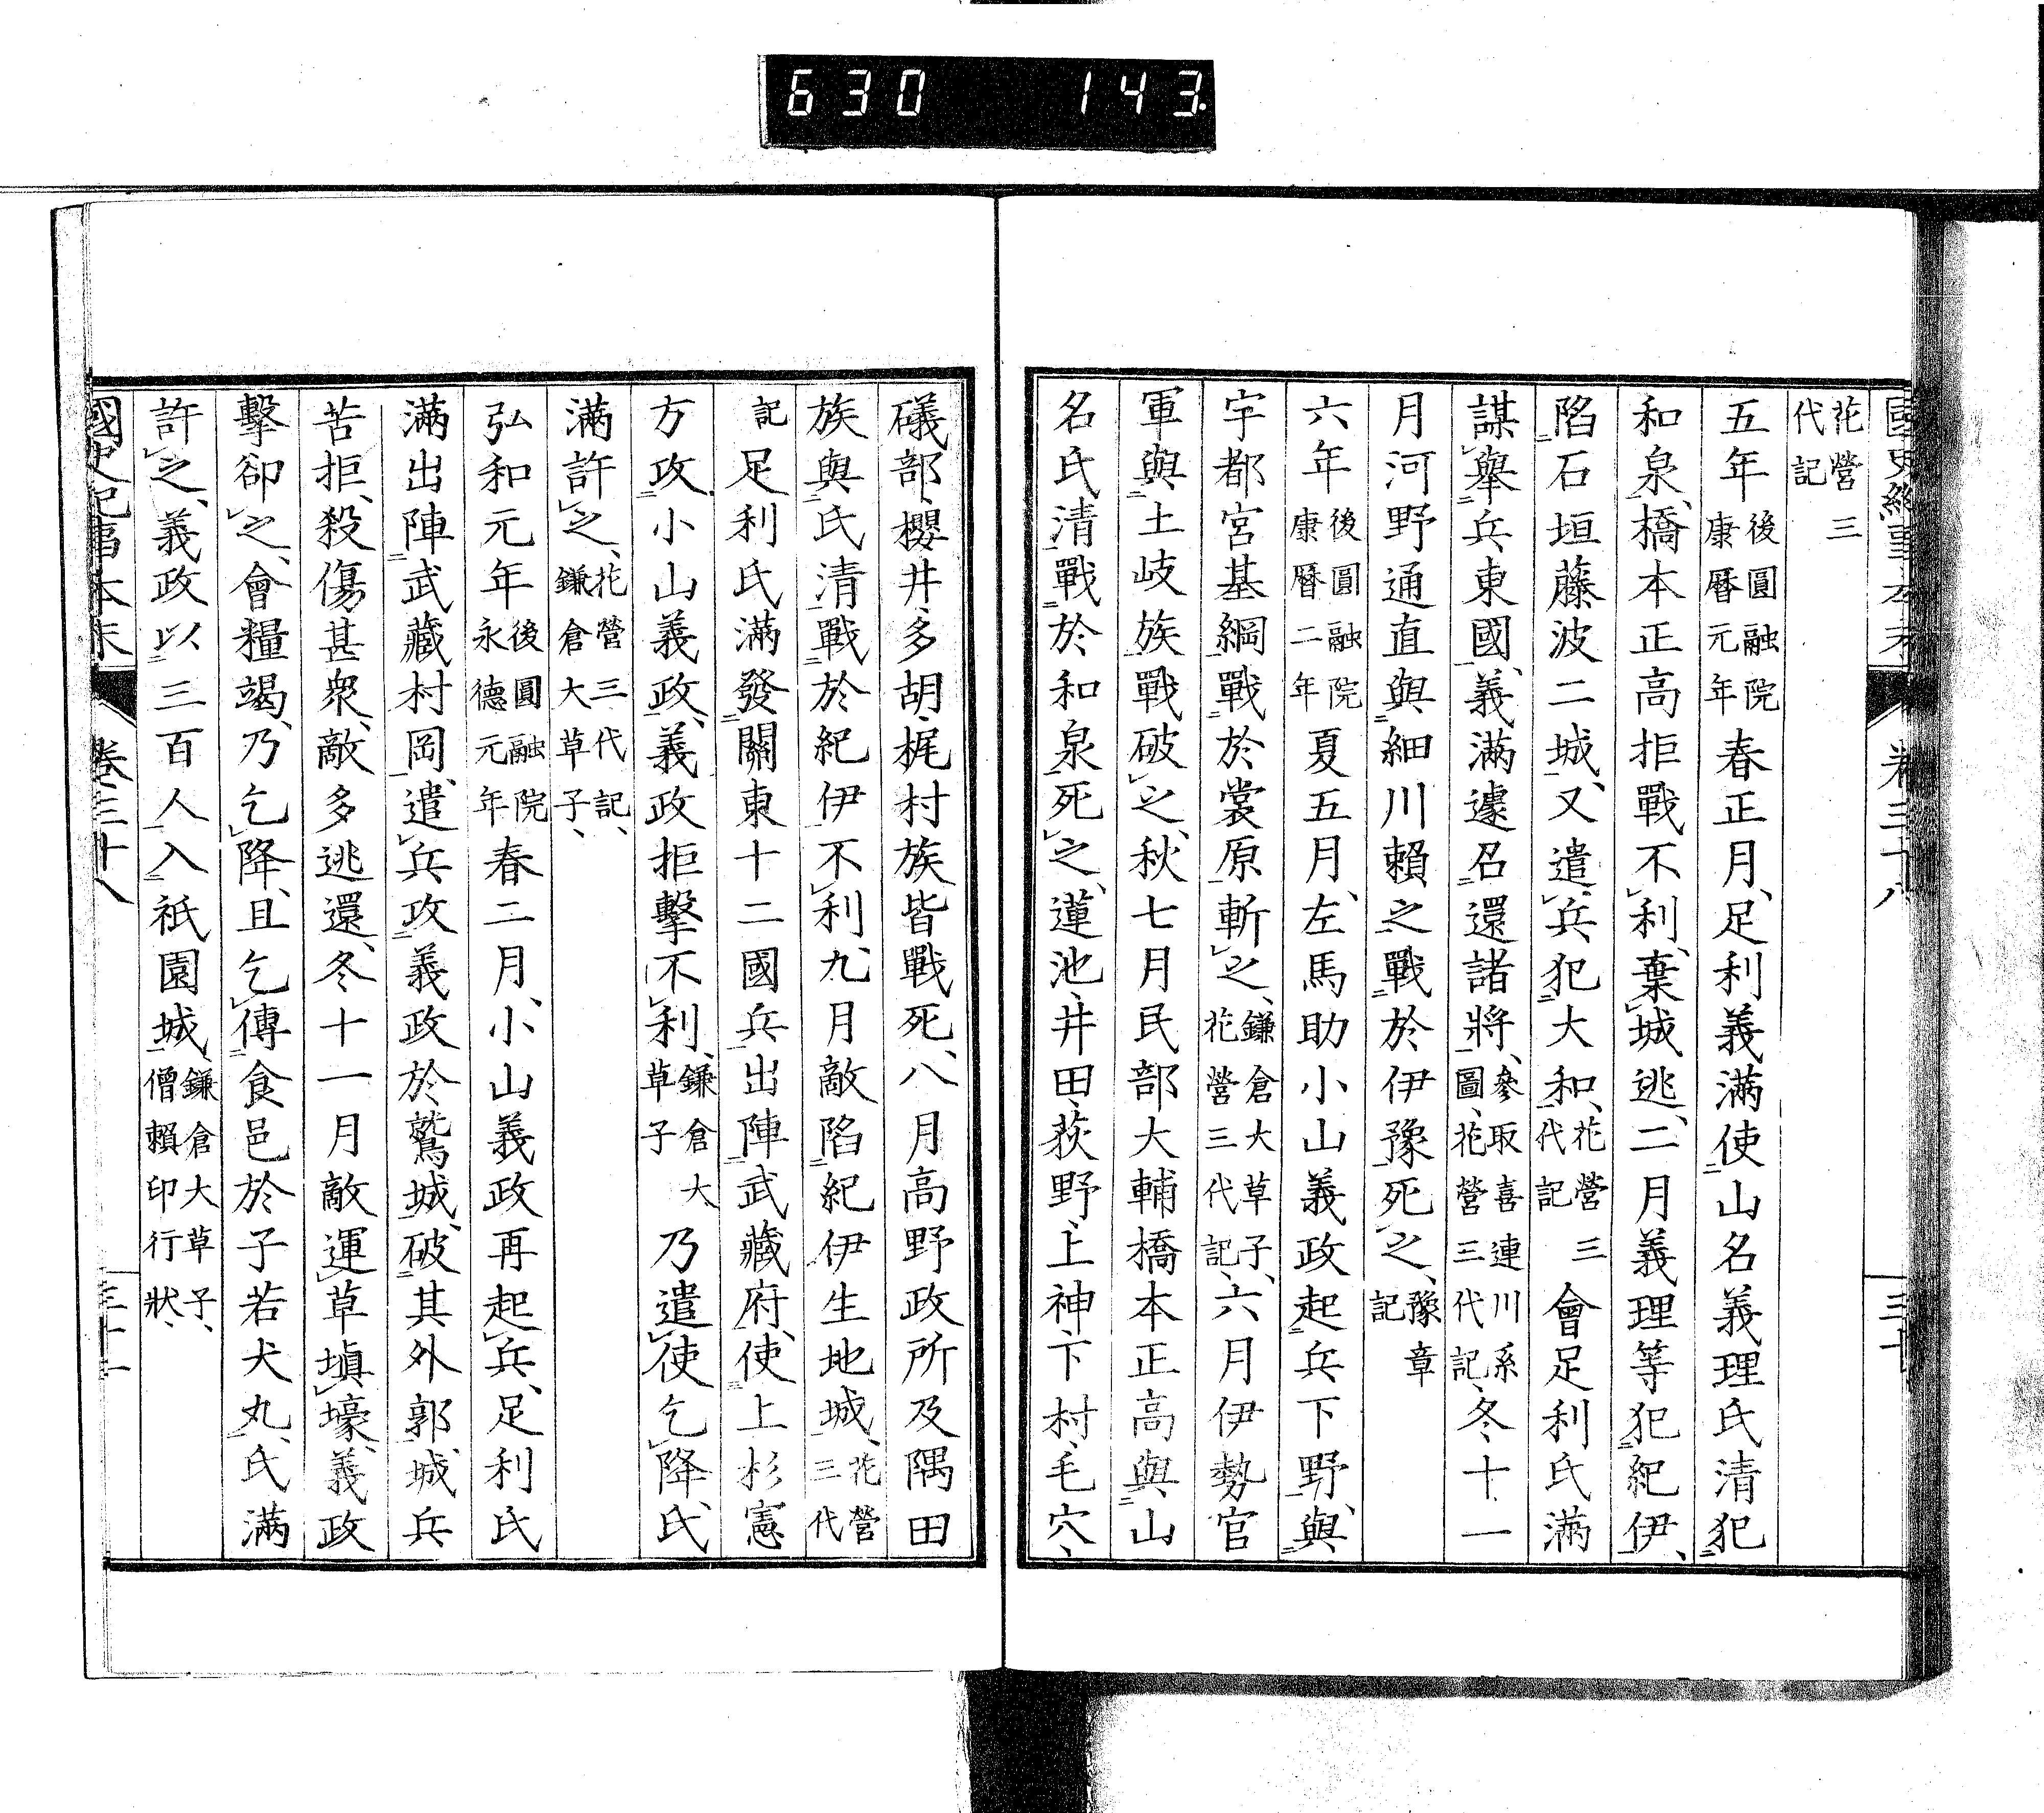 630 143.
國史紀事本末 卷三十八 三十
花營三代記
五年後圓融院康曆元年春正月、足利義滿使山名義理氏清犯
和泉、橋本正高拒戰不利、棄城逃、二月義理等犯紀伊、
陷石垣藤波二城、又遣兵犯大和、花營三代記會足利氏滿
謀舉兵東國、義滿遽召還諸將、參取喜連川系圖、花營三代記、冬十一
月河野通直與細川賴之戰於伊豫死之、豫章記
六年後圓融院康曆二年夏五月、左馬助小山義政起兵下野、與
宇都宮基綱戰於裳原斬之、鎌倉大草子、花營三代記、六月伊勢官
軍與土岐族戰破之、秋七月民部大輔橋本正高與山
名氏清戰於和泉死之、蓮池、井田、荻野、上神、下村、毛穴、
礒部、櫻井、多胡、梶村族皆戰死、八月高野政所及隅田
族與氏清戰於紀伊不利、九月敵陷紀伊生地城、花營三代
記足利氏滿發關東十二國兵出陣武藏府、使上杉憲
方攻小山義政、義政拒擊不利、鎌倉大草子乃遣使乞降、氏
滿許之、花營三代記、鎌倉大草子、
弘和元年後圓融院永德元年春二月、小山義政再起兵、足利氏
滿出陣武藏村岡、遣兵攻義政於鷲城、破其外郭、城兵
苦拒、殺傷甚衆、敵多逃還、冬十一月敵運草塡壕、義政
擊卻之、會糧竭、乃乞降、且乞傳食邑於子若犬丸、氏滿
許之、義政以三百人入祇園城、鎌倉大草子、僧賴印行狀、
國史紀事本末 卷三十八 三十一